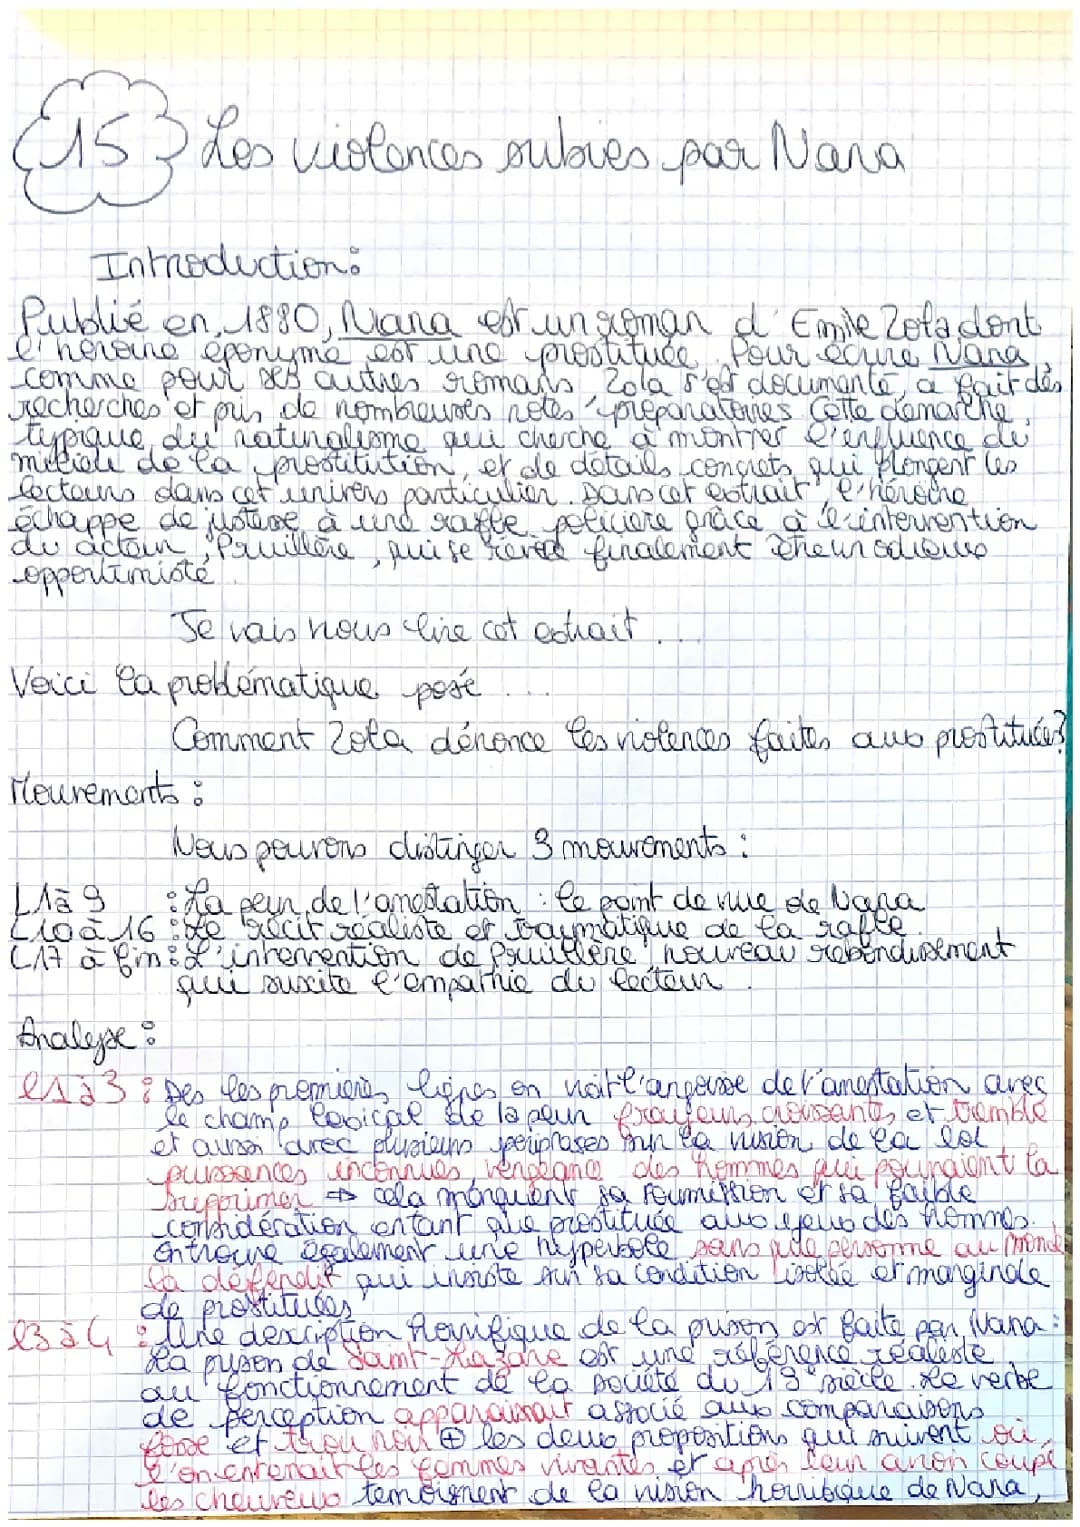 15 Les violences subies par Nana
Introduction:
Publié en 1880, Nana est un roman d'Emile Zola dont
l'héroïne éponyme est une prostituée. Pour écrire Nana,
comme pour ses autres romans, Zola s'est documenté, a fait des
recherches et pris de nombreuses notes préparatoires. Cette démarche
typique du naturalisme qui cherche à montrer l'influence du
milieu de la prostitution, et de détails concrets qui plongent les
lecteurs dans cet univers particulier. Dans cet extrait, l'héroïne
échappe de justesse à une rafle policière grâce à l'intervention
du acteur, Prullière, qui se révèle finalement être un odieux
opportuniste.
Je vais nous lire cet extrait ...
Voici la problématique posé ...
Comment Zola dénonce les violences faites aux prostituées?
Mouvements :
Nous pouvons distinger 3 mouvements :
L1 à 9 : La peur de l'arrestation : le point de vue de Nana
L10 à 16 : Le récit réaliste et traumatique de la rafle.
L17 à fin : L'intervention de Prullière, nouveau rebondissement
qui suscite l'empathie du lecteur.
Analyse :
l1 à 3 : Dès les premières lignes on voit l'angoisse de l'arrestation avec
le champ lexical de la peur frayeurs croissantes et tremble
et aussi avec plusieurs périphrases sur la vision de la loi
puissances inconnues, vengeance des hommes qui pourraient la
supprimer → cela marquent sa soumission et sa faible
considération entant que prostituée aux yeux des hommes.
On trouve également une hyperbole sans que personne au monde
la défendit qui insiste sur sa condition isolée et marginale
de prostituées
l3 à 4 : Une description horrifique de la prison est faite par Nana :
La prison de Saint-Lazare est une référence réaliste
au fonctionnement de la société du 19e siècle. Le verbe
de perception apparaissait associé aux comparaisons
fosse et trou noir ⊕ les deux propositions qui suivent où
l'on enterrait les femmes vivantes et après leur avoir coupé
les cheveux temoignent de la vision horrifique de Nana,